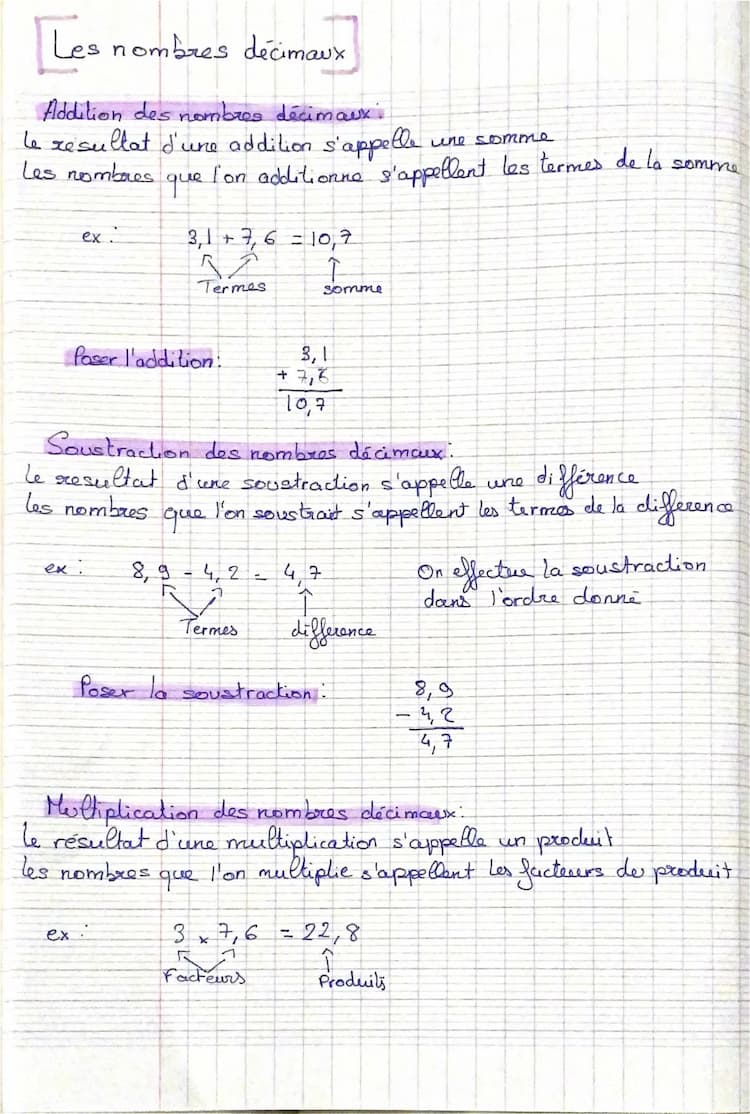 Les nombres décimaux
Addition des nombres décimaux:
Le résultat d'une addition s'appelle une somme
Les nombres que l'on additionne s'appellent les termes de la somme
ex: 3,1 + 7,6 = 10,7
Termes somme
Poser l'addition: 3,1
+ 7,6
10,7
Soustraction des nombres décimaux:
Le resultat d'une soustraction s'appelle une différence
Les nombres que l'on soustrait s'appellent les termes de la difference
ex: 8,9 - 4,2 = 4,7 On effectue la soustraction
dans l'ordre donné
Termes difference
Poser la soustraction: 8,9
- 4,2
4,7
Multiplication des nombres décimaux:
Le résultat d'une multiplication s'appelle un produit
Les nombres que l'on multiplie s'appellent les facteurs de produit
ex: 3 x 7,6 = 22,8
Facteurs Produits